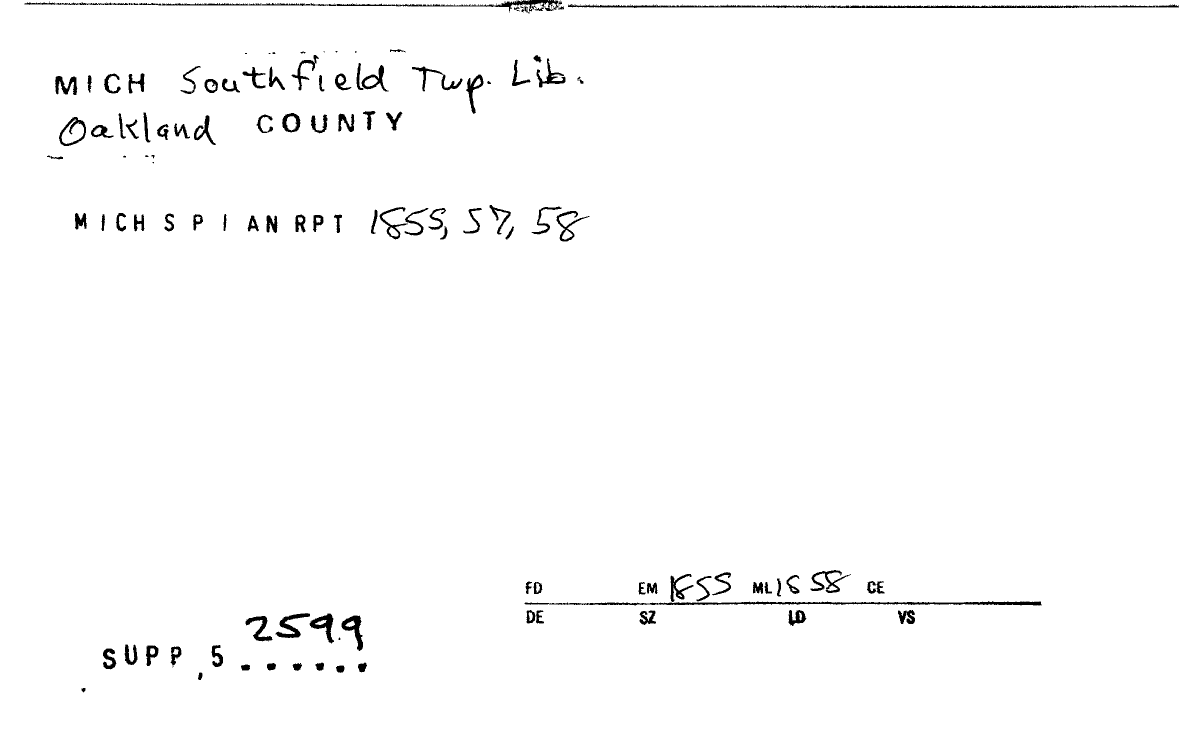 MICH Southfield Twp. Lib.
Oakland COUNTY
MICH S P I AN RPT 1855, 57, 58
FD EM 1855 ML 1858 CE
DE SZ LD VS
2599
SUPP, 5 ......